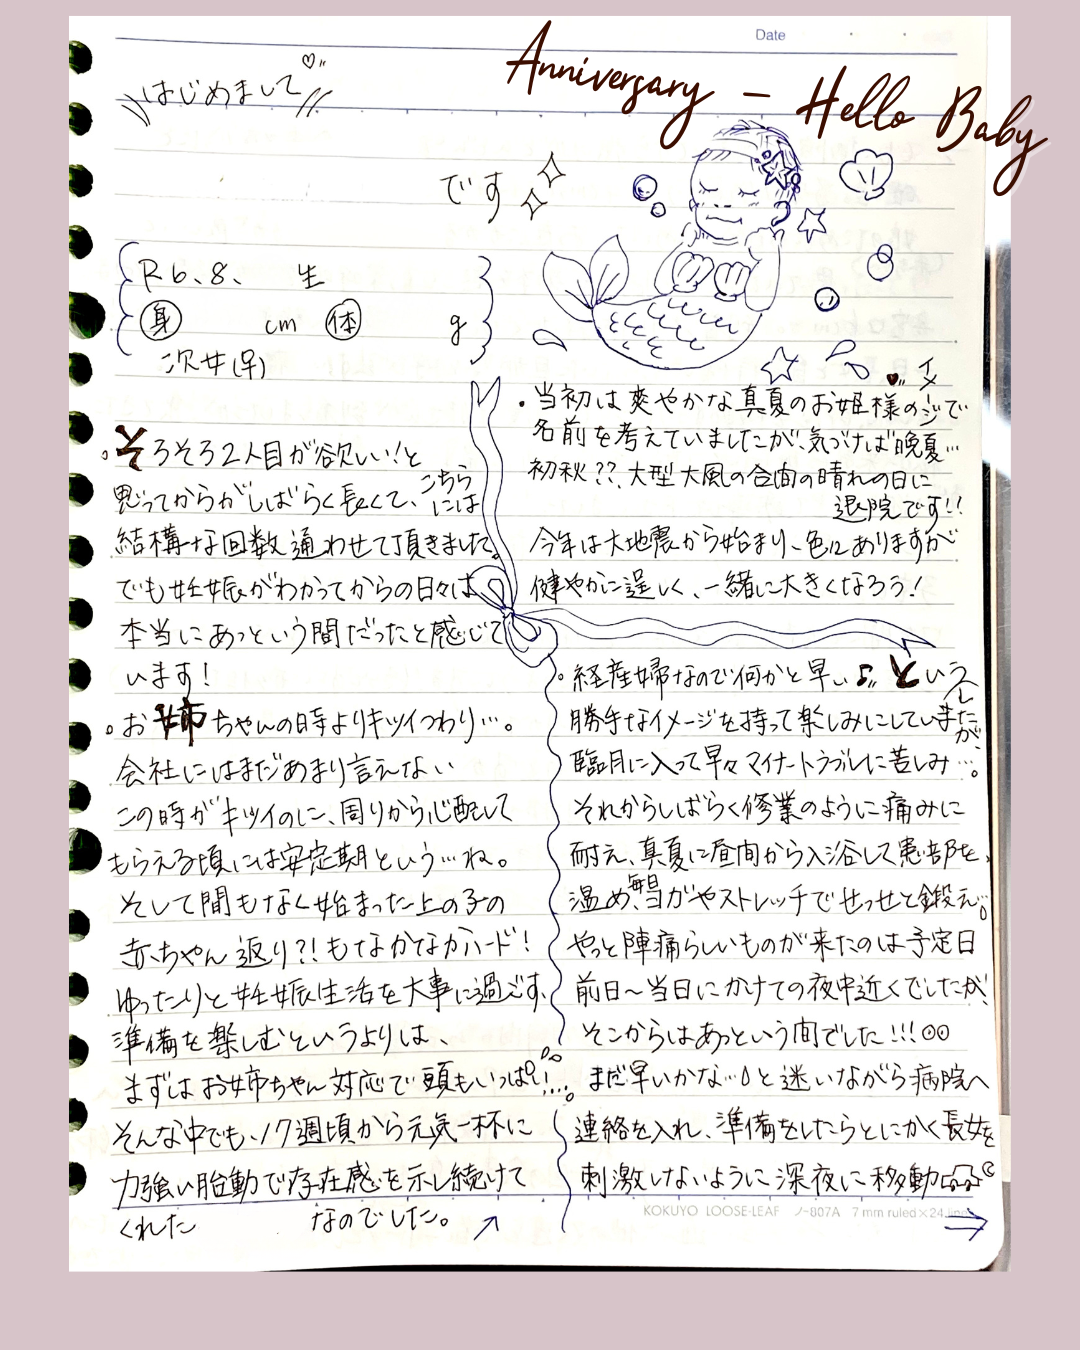 Anniversary – Hello Baby
Date
はじめまして♡
です
R6.8、 生
身 cm 体 g
次女(早)
。そろそろ2人目が欲しい!と
思ってからがしばらく長くて、こちらには
結構な回数通わせて頂きました。
でも妊娠がわかってからの日々は
本当にあっという間だったと感じて
います!
。お姉ちゃんの時よりキツイつわり…。
会社にはまだあまり言えない
この時がキツイのに、周りから心配して
もらえる頃には安定期という…ね。
そして間もなく始まった上の子の
赤ちゃん返り?!もなかなかハード!
ゆったりと妊娠生活を大事に過ごす、
準備を楽しむというよりは、
まずはお姉ちゃん対応で頭もいっぱい!…。
そんな中でも、17週頃から元気一杯に
力強い胎動で存在感を示し続けて
くれた なのでした。
・当初は爽やかな真夏のお姫様のイメージで
名前を考えていましたが、気づけば晩夏…
初秋??、大型大風の合間の晴れの日に
退院です!!
今年は大地震から始まり、色々ありますが
健やかに逞しく、一緒に大きくなろう!
。経産婦なので何かと早い♫ という
勝手なイメージを持って楽しみにしていましたが、
臨月に入って早々マイナートラブルに苦しみ…。
それからしばらく修業のように痛みに
耐え、真夏に昼間から入浴して患部を
温め、毎日 ヨガやストレッチでせっせと鍛え。
やっと陣痛らしいものが来たのは予定日
前日〜当日にかけての夜中近くでしたが、
そこからはあっという間でした!!!
まだ早いかな…と迷いながら病院へ
連絡を入れ、準備をしたらとにかく長女を
刺激しないように深夜に移動
KOKUYO LOOSE-LEAF ノ-807A 7 mm ruled×24 lines